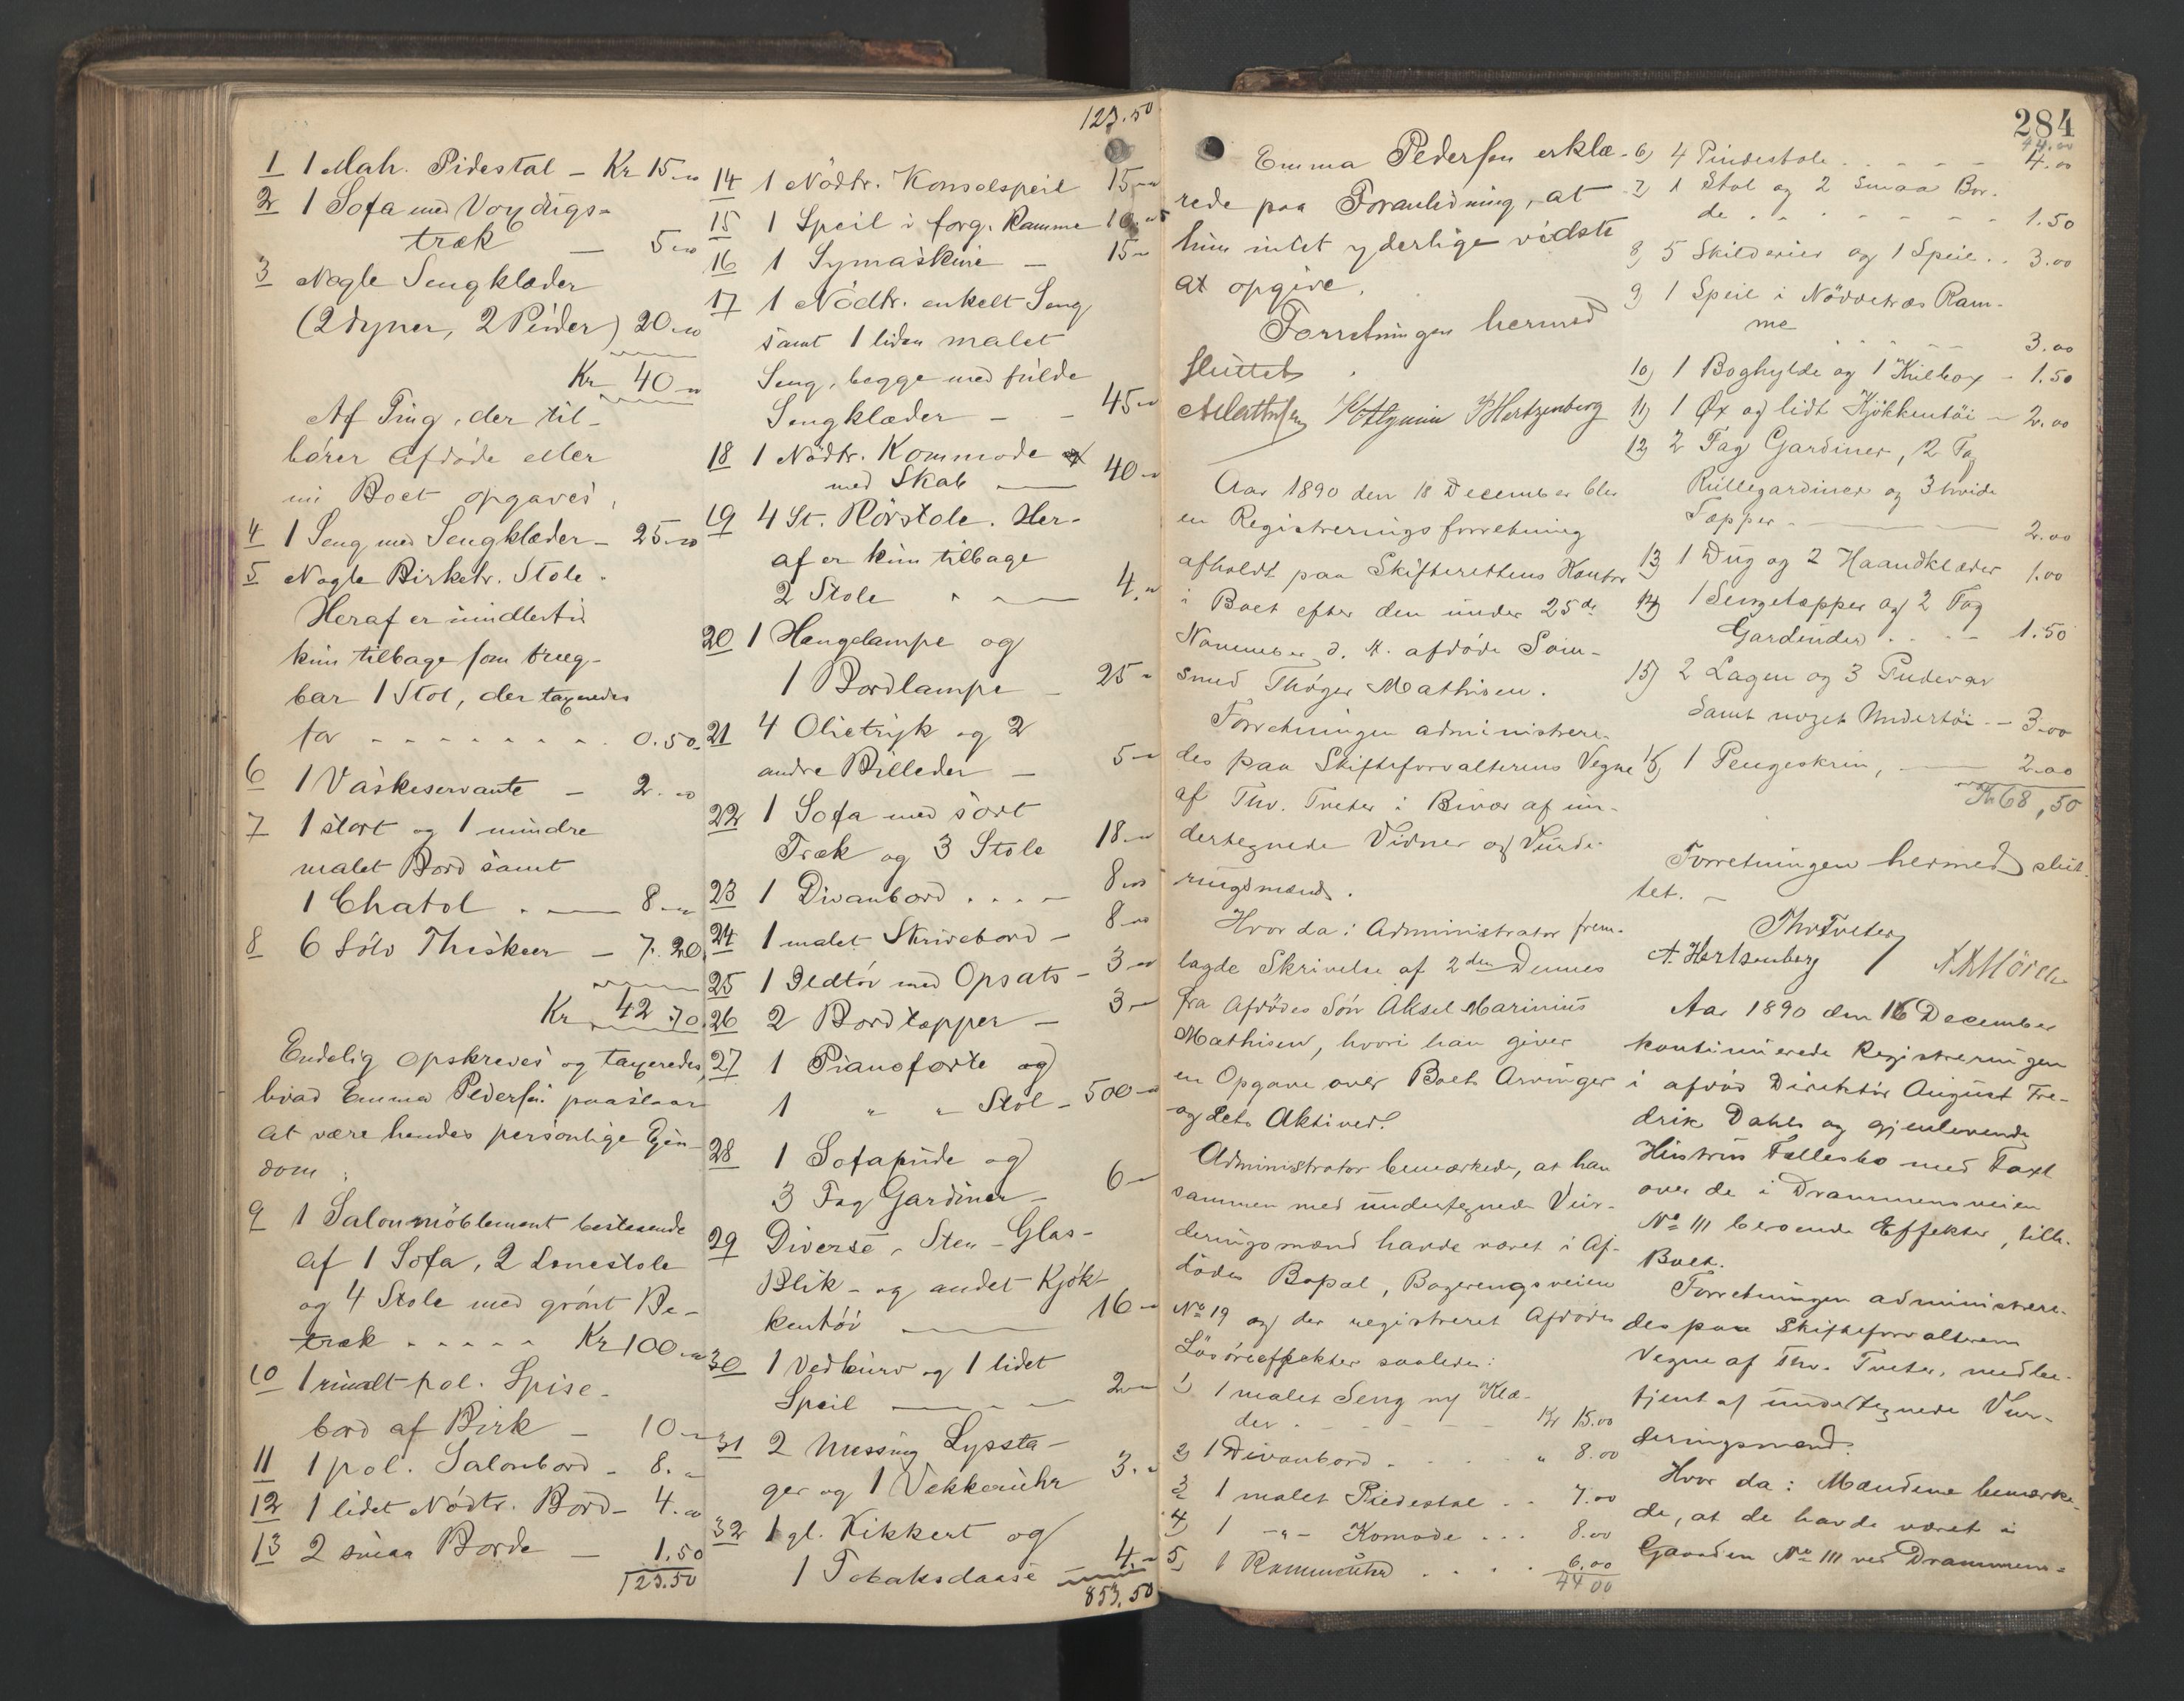 1 1 Mah. Pidestal - Kr 15.00
2 1 Sofa med Voxdugs-
træk - 5.00
3 Nogle Sengklæder
(2 dyner, 2 Puder) 20.00
Kr 40.00
Af Ting, der til-
hører Afdøde eller
nu Boet opgaves,
4 1 Seng med Sengklæder - 25.00
5 Nogle Birketr. Stole.
Heraf er imidlertid
kun tilbage som brug-
bar 1 Stol, der taxeredes
for - - - - - - - 0.50
6 1 Vaskeservante - 2.00
7 1 stort og 1 mindre
malet Bord samt
1 Chatol . - 8.00
8 6 Sölv Theskeer - 7.20
Kr 42.70
Endelig opskreves og taxeredes,
hvad Emma Pedersen paastaar
at være hendes personlige Ejen-
dom:
9 1 Salonmöblement bestaaende
af 1 Sofa, 2 Lænestole
og 4 Stole med grønt Be-
træk - - - - - Kr 100.00
10 1 rundt pol. Spise-
bord af Birk - 10.00
11 1 pol. Salonbord - 8.00
12 1 lidet Nödtr. Bord - 4.00
13 2 smaa Borde - 1.50
123.50
123.50
14 1 Nödtr. Konsolspeil 15.00
15 1 Speil i forg. Ramme 10.00
16 1 Symaskine - 15.00
17 1 Nödtr. enkelt Seng
samt 1 liden malet
Seng, begge med fulde
Sengklæder - - 45.00
18 1 Nödtr. Kommode
med Skab - 40.00
19 4 St. Rörstole. Her-
af er kun tilbage
2 Stole - 4.00
20 1 Hængelampe og
1 Bordlampe - 25.00
21 4 Olietryk og 2
andre Billeder - 5.00
22 1 Sofa med sort
Træk og 3 Stole 18.00
23 1 Divanbord . . . - 8.00
24 1 malet Skrivebord - 8.00
25 1 Ildtöi med Opsats - 3.00
26 2 Bordtæpper - 3.00
27 1 Pianoforte og
1 " " Stol - 500.00
28 1 Sofapude og
3 Fag Gardiner - 6.00
29 Diverse, Sten - Glas-
Blik - og andet Kjök-
kentöi - 16.00
30 1 Vedkurv og 1 lidet
Speil - 2.00
31 2 Messing Lyssta-
ger og 1 Vækkeruhr 3.00
32 1 gl. Kikkert og
1 Tobaksdaase 4.00
853.50
Emma Pedersen erklæ-
rede paa Foranledning, at
hun intet yderlige vidste
at opgive.
Forretningen hermed
sluttet.
Hertzenberg
Aar 1890 den 18 December blev
en Registreringsforretning
afholdt paa Skifterettens Kontor
i Boet efter den under 25de
November d. A. afdøde Söm-
smed Thöger Mathisen.
Forretningen administrere-
des paa Skifteforvalterens Vegne
af Thv. Tveter i Bivær af un-
dertegnede Vidner og Vurde-
ringsmænd.
Hvor da: Administrator frem-
lagde Skrivelse af 2den Dennes
fra Afdödes Sön Aksel Marinius
Mathisen, hvori han giver
en Opgave over Boets Arvinger
og dets Aktiver.
Administrator bemærkede, at han
sammen med undertegnede Vur-
deringsmænd havde været i Af-
dödes Bopæl, Bogerengsveien
No 19 og der registreret Afdödes
Lösöreeffekter saaledes:
1) 1 malet Seng m/ Klæ-
der - - - - - Kr 15.00
2) 1 Divanbord . . . " 8.00
3) 1 malet Piedestal . . 7.00
4) 1 -"- Komode . . . 8.00
5) 1 Rammeuhr . . . . 6.00
44.00
284
44.00
6) 4 Pindestole . . - - - 4.00
7) 1 Stol og 2 smaa Bor-
de . . . - - - 1.50
8) 5 Skilderier og 1 Speil . . 3.00
9) 1 Speil i Nöddetræs Ram-
me - - - 3.00
10) 1 Boghylde og 1 Kulbox - 1.50
11) 1 Øx og lidt Kjökkentöi - 2.00
12) 2 Fag Gardiner, 2 Fag
Rullegardiner og 3 hvide
Tæpper - 2.00
13) 1 Dug og 2 Haandklæder 1.00
14) 1 Sengetæpper og 2 Fag
Gardiner . . . - 1.50
15) 2 Lagen og 3 Pudevar
samt noget Undertöi - - 3.00
16) 1 Pengeskrin, - 2.00
Kr 68,50
Forretningen hermed slut-
tet. -
Thv Tveter
A. Hertzenberg
Aar 1890 den 16 December
kontinuerede Registreringen
i afdöd Direktör August Fre-
drik Dahls og gjenlevende
Hustrus Fællesbo med Taxt
over de i Drammensveien
No 111 beroende Effekter, tilh.
Boet.
Forretningen administrere-
des paa Skifteforvalterens
Vegne af Thv. Tveter, medbe-
tjent af undertegnede Vur-
deringsmænd.
Hvor da: Mændene bemærke-
de, at de havde været i
Gaarden No 111 ved Drammens-